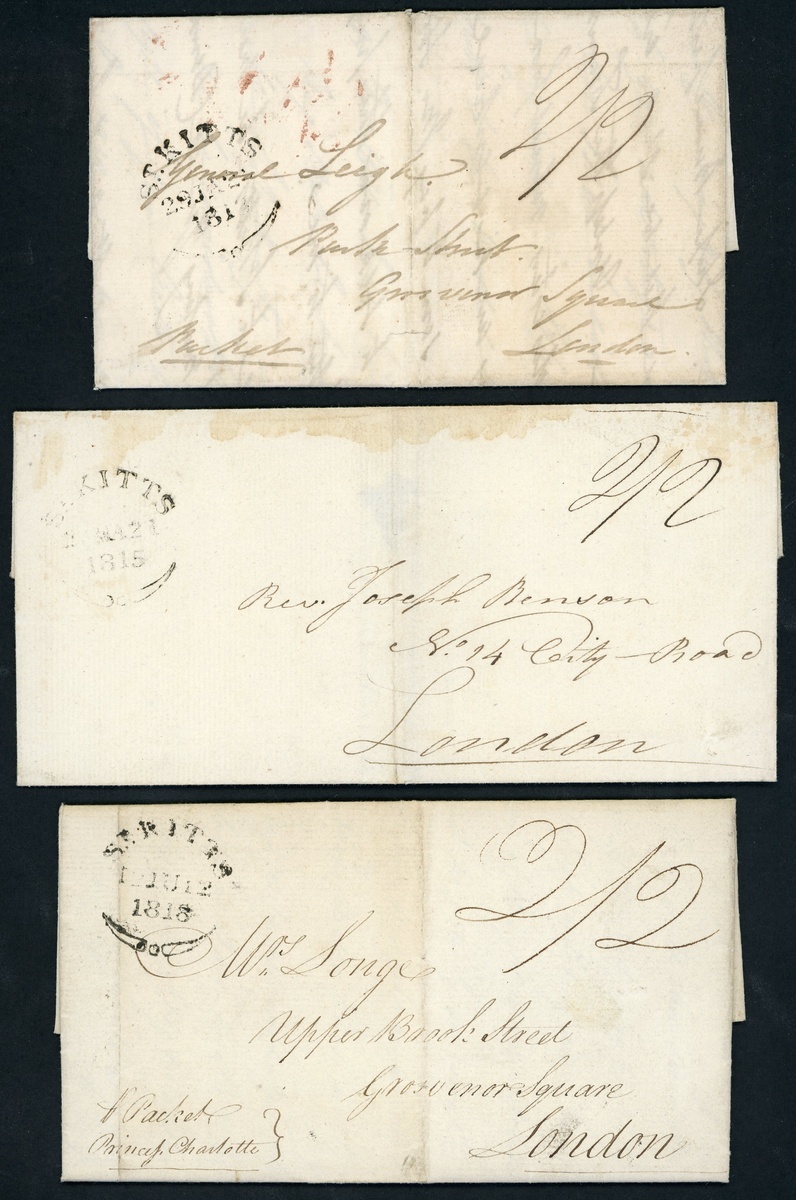 St KITTS
2/2
General Leigh.
Park Street.
Grosvenor Square
Packet
London.
St KITTS
1815
2/2
Rev. Joseph Benson
No. 14 City-Road
London
St KITTS
1818
2/2
Mrs. Longe
Upper Brook Street
Grosvenor Square
Packet
Princess Charlotte
London